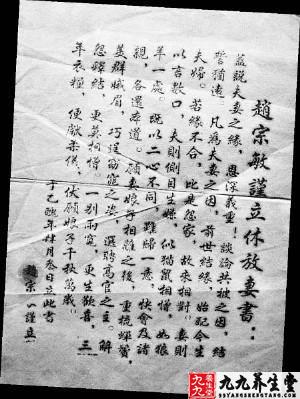 趙宗敏謹立休放妻書：
蓋說夫妻之緣，恩深義重！談論共被之因，結
誓猶遠。凡為夫妻之因，前世結緣，始配今生
夫婦。若緣不合，比是怨家，故來相對。妻則
以言數口，夫則側目生嫌，似貓鼠相憎，如狼
羊一處。既以二心不同，難歸一意，快會及諸
親，各還本道。願妻娘子相離之後，重梳蟬鬢，
美裙娥眉，巧逞窈窕之姿，選聘高官之主。解
怨釋結，更莫相憎，一別兩寬，更生歡喜。三
年衣糧，便獻柔儀。伏願娘子千秋萬歲。
于乙酉年肆月叁日立此書
趙宗 謹立
九九养生堂
99YANGSHENGTANG.COM